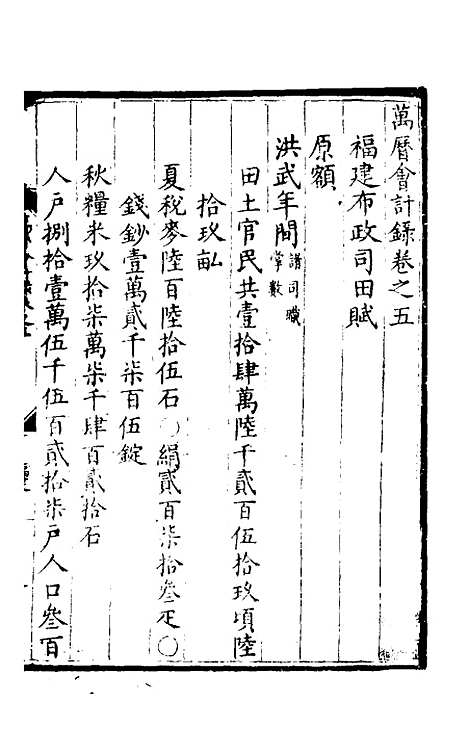 萬曆會計錄卷之五
福建布政司田賦
原額
洪武年間諸司職掌數
田土官民共壹拾肆萬陸千貳百伍拾玖頃陸
拾玖畝
夏稅麥陸百陸拾伍石○絹貳百柒拾叁疋○
錢鈔壹萬貳千柒百伍錠
秋糧米玖拾柒萬柒千肆百貳拾石
人戶捌拾壹萬伍千伍百貳拾柒戶人口叁百